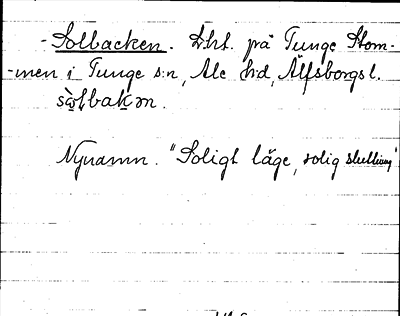 - Solbacken. Lht. på Tunge Stom-
-men i Tunge s:n, Ale hd, Älfsborgs l.
Nynamn. "Soligt läge, solig sluttning"